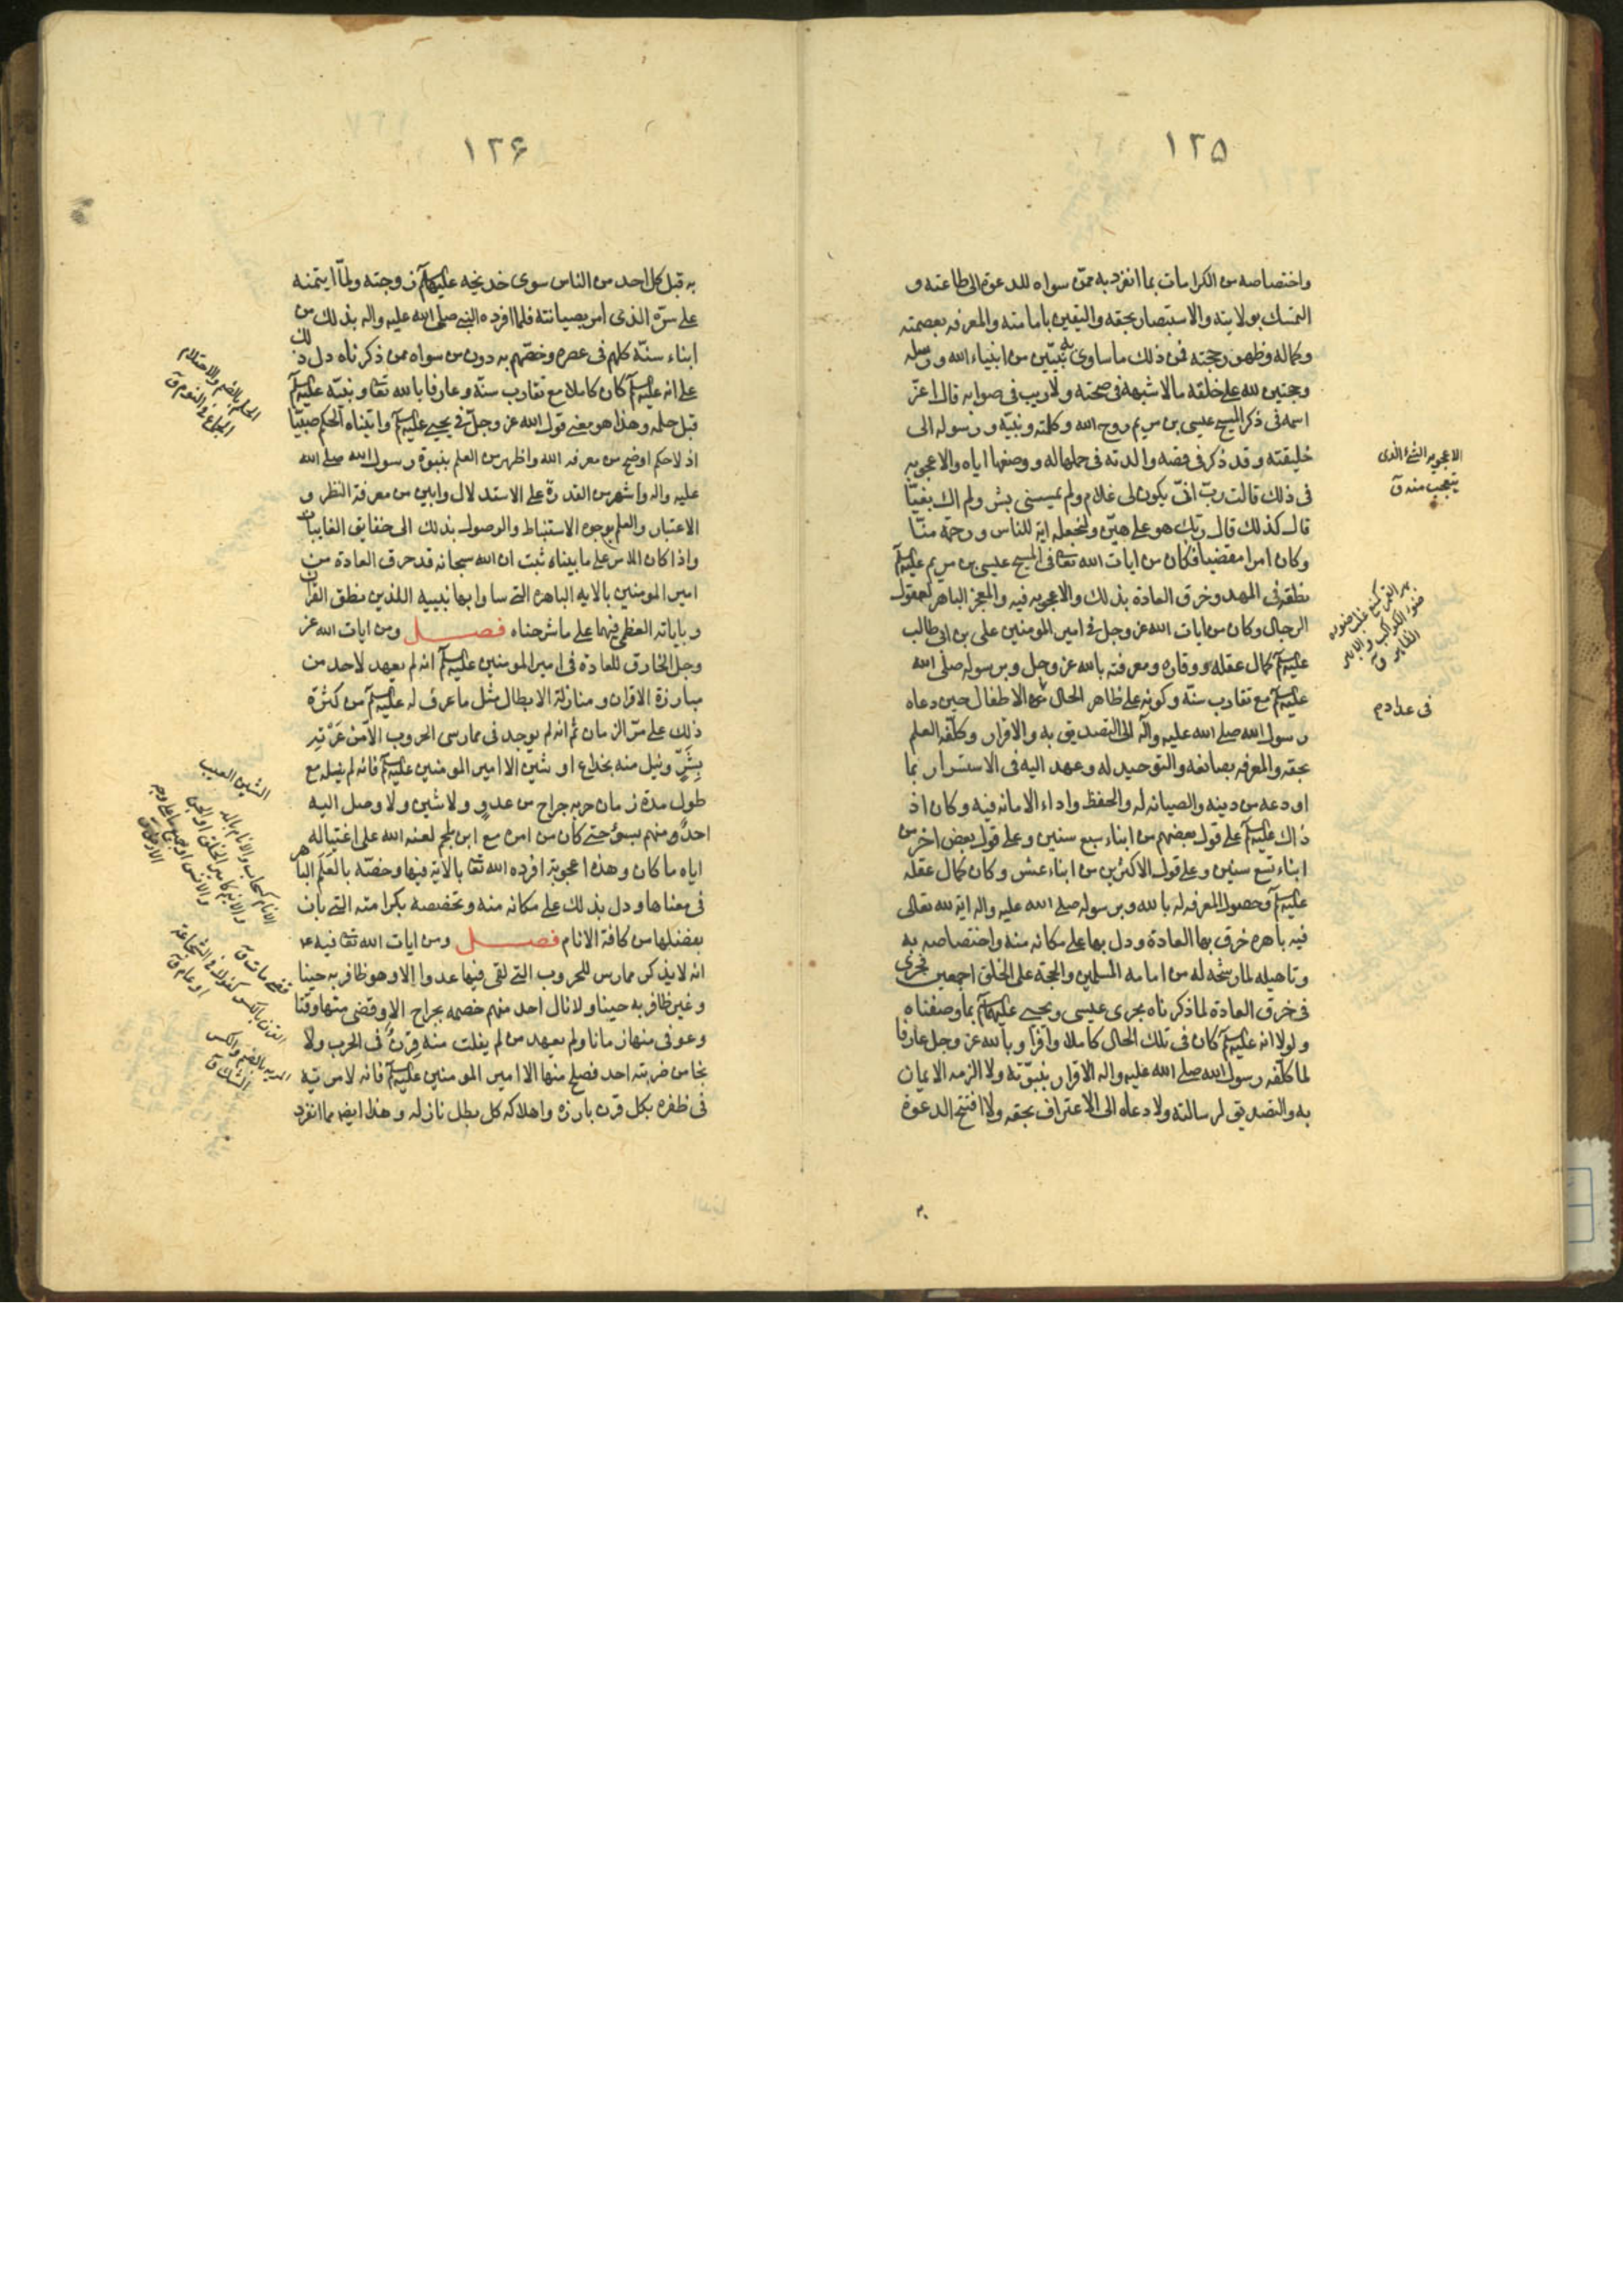 ١٢٥
واختصاصه من الكرامات بما انفرد به ممّن سواه للدعوة الى طاعته و
التمسك بولايته والاستبصار بحقه واليقين بامامته والمعرفه بعصمته
وكماله وظهور حجته فمن ذلك ما ساوى به نبيّين من انبياء الله ورسله
وحجتين لله على خلقه ما لا شبهه فى صحته ولا ريب فى صوابه قال الله عزّ
اسمه فى ذكر المسيح عيسى بن مريم روح الله وكلمته ونبيّه ورسوله الى
خليقته وقد ذكر فى قصه والدته فى حملها له ووصفها اياه والاعجوبه
فى ذلك قالت ربّ انّى يكون لى غلام ولم يمسسنى بشر ولم اك بغيّا
قال كذلك قال ربّك هو على هيّن ولنجعله اية للناس ورحمة منّا
وكان امرا مقضيا فكان من ايات الله تعا فى المسيح عيسى بن مريم عليه السلم
نطقه فى المهد وخرق العادة بذلك والاعجوبه فيه والمعجز الباهر لعقول
الرجال وكان من ايات الله عز وجل فى امير المومنين على بن ابى طالب
عليه السلم كمال عقله ووقاره ومعرفته بالله عز وجل وبرسوله صلى الله
عليه السلم مع تقارب سنّه وكونه على ظاهر الحال الاطفال حين دعاه
رسول الله صلى الله عليه واله الى التصديق به والاقرار وكلّفه العلم
بحقه والمعرفه بصانعه والتوحيد له وعهد اليه فى الاستسرار بما
اودعه من دينه والصيانه له والحفظ واداء الامانه فيه وكان اذ
ذاك عليه السلم على قول بعضهم من ابناء سبع سنين وعلى قول بعض اخر من
ابناء تسع سنين وعلى قول الاكثرين من ابناء عشر وكان كمال عقله
عليه السلم وحصول المعرفه له بالله وبرسوله صلى الله عليه واله اية لله تعالى
فيه باهره خرق بها العادة ودل بها على مكانه منه واختصاصه به
وتاهيله لما رشحه له من امامه المسلمين والحجة على الخلق اجمعين فجرى
فى خرق العادة لما ذكرناه مجرى عيسى ويحيى عليهما السلم بما وصفناه
ولولا انه عليه السلم كان فى تلك الحال كاملا وافرا وبالله عز وجل عارفا
لما كلّفه رسول الله صلى الله عليه واله الاقرار بنبوّته ولا الزمه الايمان
به والتصديق لرسالته ولا دعاه الى الاعتراف بحقه ولا افتتح الدعوة
الاعجوبه الشئ الذى
يتعجب منه ق
بهر القمر كمنع غلب ضوءه
ضوء الكواكب و
فى عداد م
١٢۶
به قبل كل احد من الناس سوى خديجه عليها السلم زوجته ولمّا ايتمنه
على سرّه الذى امر بصيانته فلما افرده النبى صلى الله عليه واله بذلك من
ابناء سنّه كلهم فى عصره وخصّهم به دون من سواه ممن ذكرناه دل ذلك
على انه عليه السلم كان كاملا مع تقارب سنّه وعارفا بالله تعا ونبيّه عليه السلم
قبل حلمه وهذا هو معنى قول الله عز وجلّ فى يحيى عليه السلم واتيناه الحكم صبيّا
اذ لا حكم اوضح من معرفه الله واظهر من العلم بنبوة رسول الله صلى الله
عليه واله واشهر من القدرة على الاستدلال وابين من معرفة النظر و
الاعتبار والعلم بوجوه الاستنباط والوصول بذلك الى حقايق الغايبات
واذا كان الامر على ما بيناه ثبت ان الله سبحانه قد خرق العادة من
امير المومنين بالايه الباهره التى ساوا بها نبييه اللذين نطق القران
وباياته العظمى فيهما على ما شرحناه فصل ومن ايات الله عز
وجل الخارق للعادة فى امير المومنين عليه السلم انه لم يعهد لاحد من
مبارزة الاقران ومنازلة الابطال مثل ما عرف له عليه السلم من كثرة
ذلك على مرّ الزمان ثم انه لم يوجد فى ممارسى الحروب الا من عرته
بشرّ ونيل منه بجراح او شين الا امير المومنين عليه السلم فانه لم ينله مع
طول مدة زمان حربه جراح من عدو ولا شين ولا وصل اليه
احد منهم بسوء حتى كان من امره مع ابن ملجم لعنه الله على اغتياله
اياه ما كان وهذه اعجوبة افرده الله تعا بالاية فيها وخصّه بالعلم الباهر
فى معناها ودل بذلك على مكانه منه وتخصصه بكرامته التى بان
بفضلها من كافة الانام فصل ومن ايات الله تعا فيه عم
انه لا يذكر ممارس للحروب التى لقى فيها عدوا الا وهو ظافر به حينا
وغير ظافر به حينا ولا نال احد منهم خصمه بجراح الا وقضى منها وقتا
وعوفى منها زمانا ولم يعهد من لم يفلت منه قرن فى الحرب ولا
نجا من ضربته احد فصلح منها الا امير المومنين عليه السلم فانه لا مرية
فى ظفره بكل قرن بارزه واهلاكه كل بطل نازله وهذا ايضا مما انفرد
الحلم بالضم والاحتلام
الجماع فى النوم ق
الشين العيب
الانام كسحاب والانام بالمد
والانيم كامير الخلق او الجن
والانس او جميع ما على وجه
الارض ق
قضى مات ق
القرن بالكسر كفوك فى الشجاعة
او عام ق
المريه بالضم والكسر
الشك ق